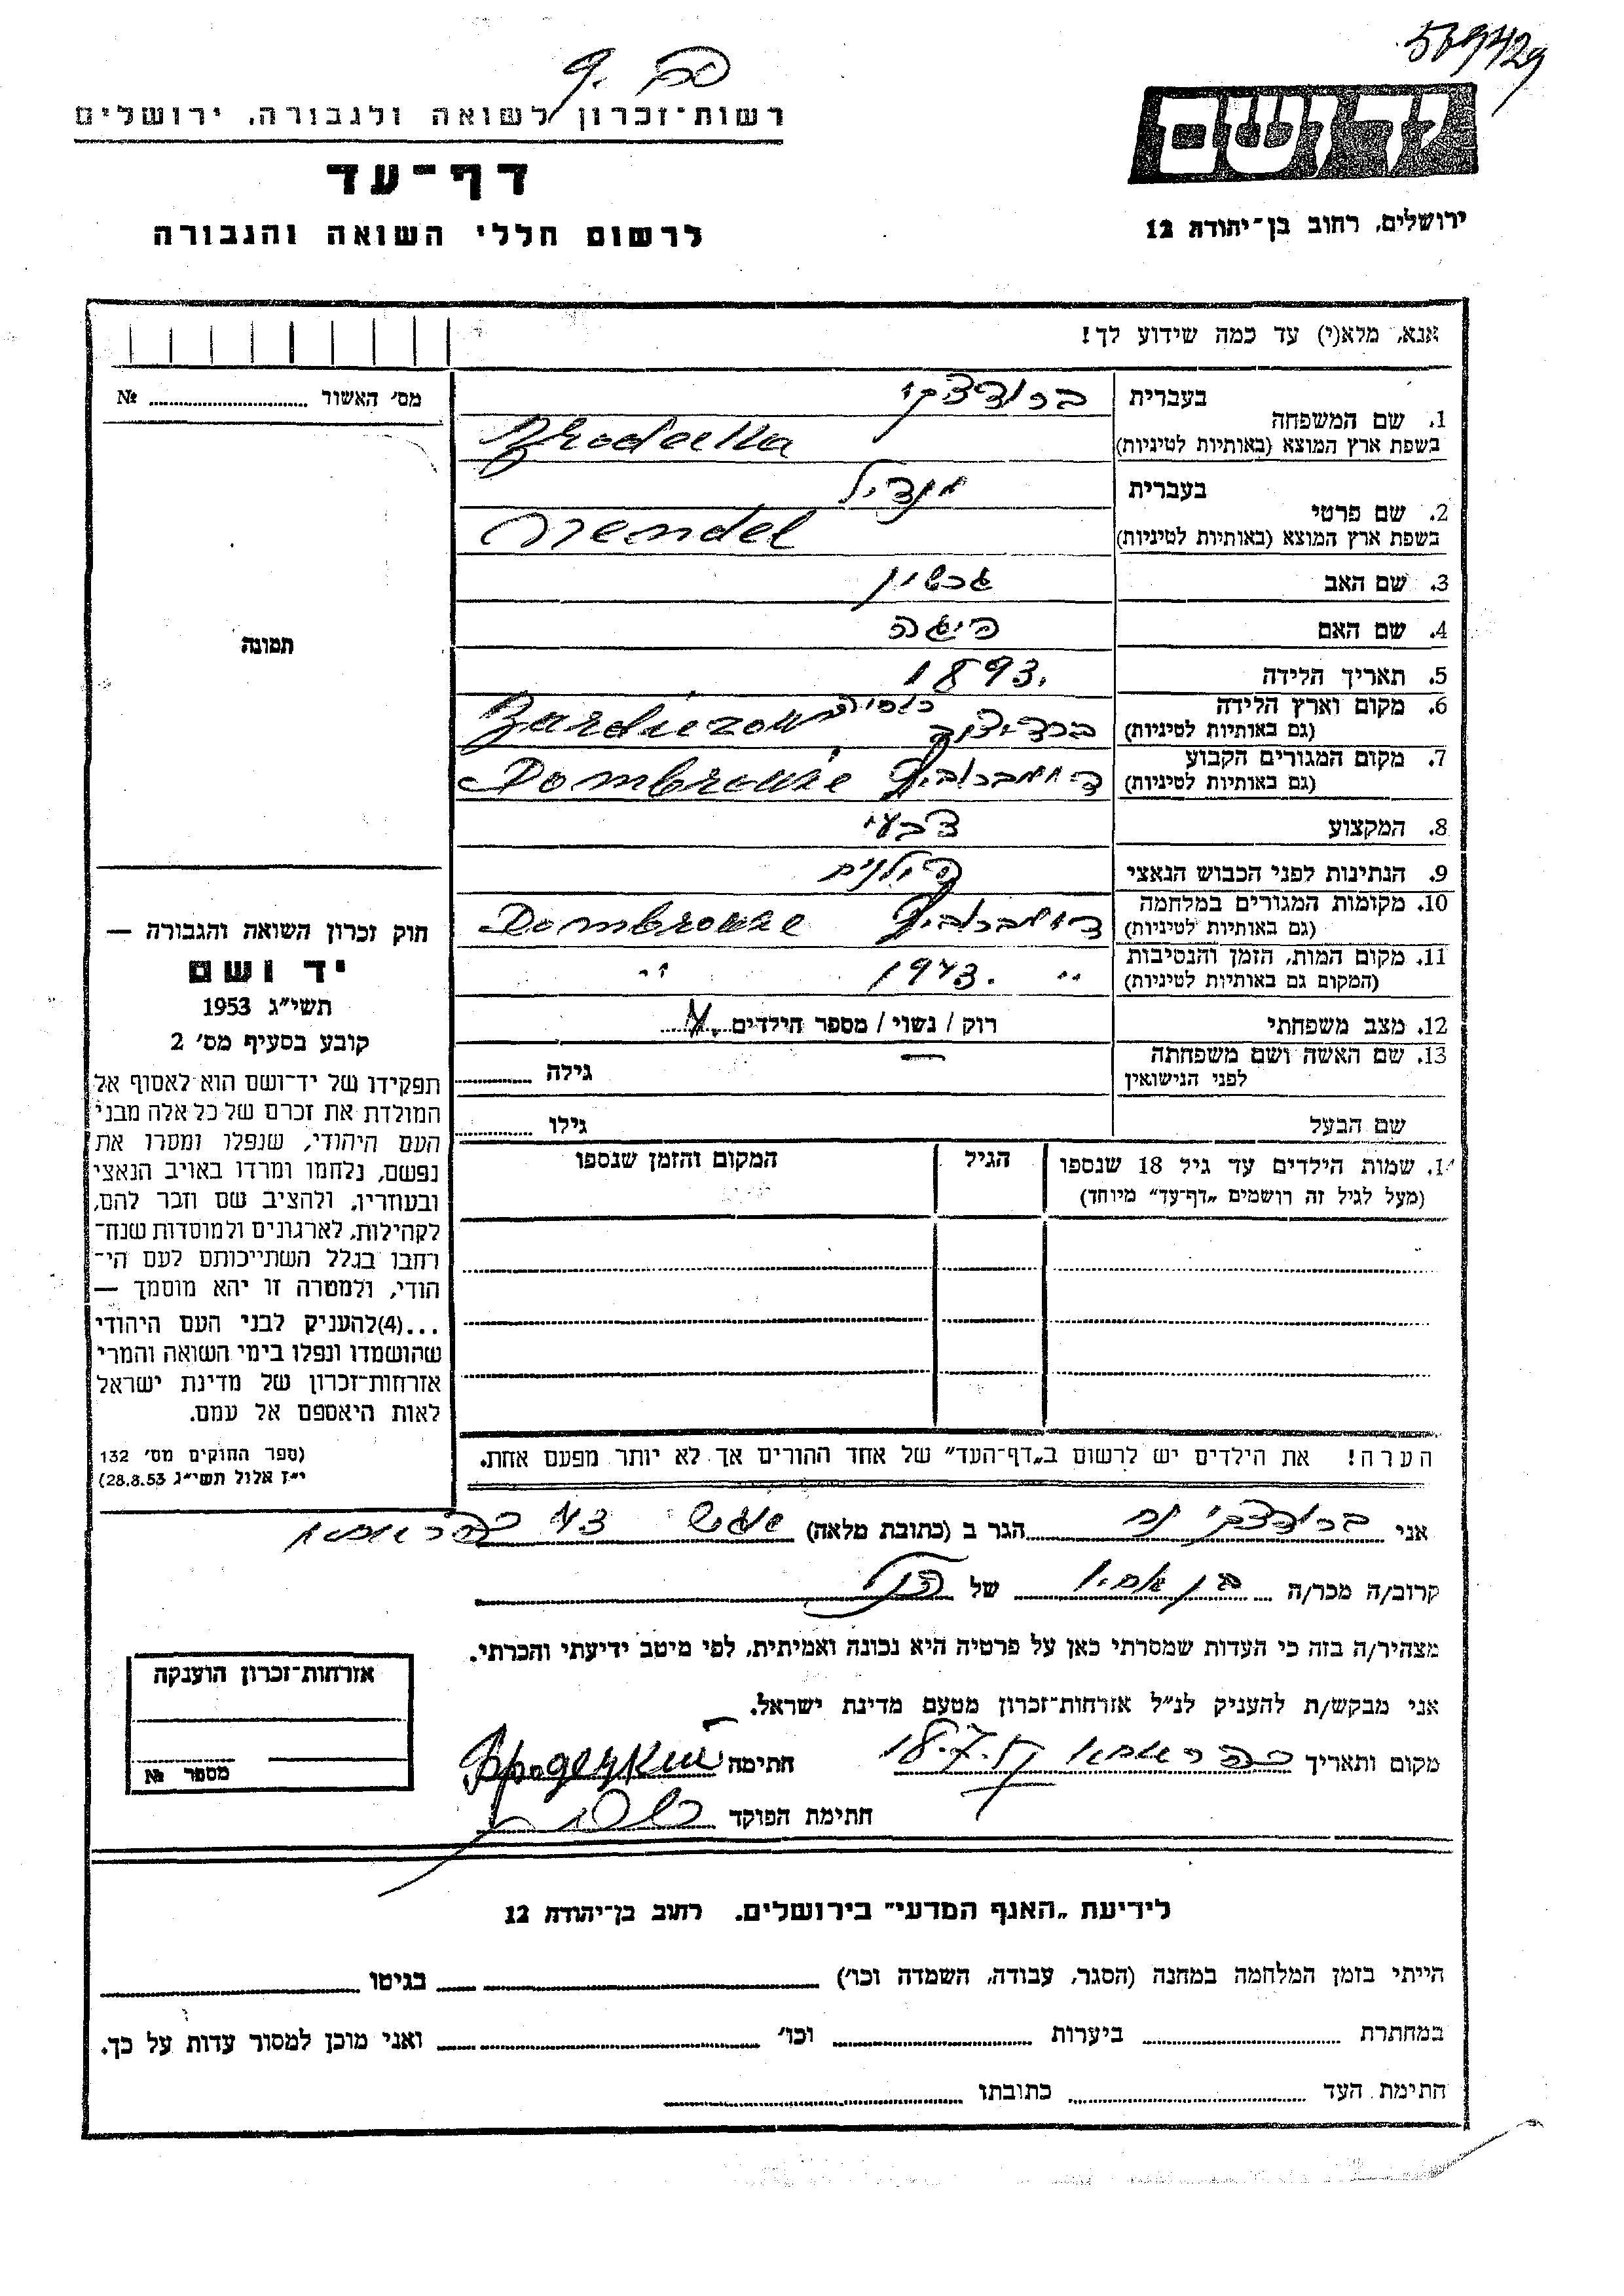 569429
יד ושם
ירושלים, רחוב בן־יהודה 12
רשות־זכרון לשואה ולגבורה, ירושלים
דף־עד
לרשום חללי השואה והגבורה
אנא, מלא(י) עד כמה שידוע לך!
מס׳ האשור № 
1. שם המשפחה
בעברית ברודצקי
בשפת ארץ המוצא (באותיות לטיניות)
2. שם פרטי
בעברית מנדיל
בשפת ארץ המוצא (באותיות לטיניות) Mendel
3. שם האב גרשון
4. שם האם חיגה
5. תאריך הלידה 1893.
6. מקום וארץ הלידה
(גם באותיות לטיניות)
7. מקום המגורים הקבוע
(גם באותיות לטיניות)
8. המקצוע צבעי
9. הנתינות לפני הכבוש הנאצי
10. מקומות המגורים במלחמה
(גם באותיות לטיניות)
11. מקום המות, הזמן והנסיבות 1943.
(המקום גם באותיות לטיניות)
12. מצב משפחתי רוק / נשוי / מספר הילדים
13. שם האשה ושם משפחתה
לפני הנישואין — גילה
שם הבעל גילו
תמונה
1. שמות הילדים עד גיל 18 שנספו
(מעל לגיל זה רושמים „דף־עד״ מיוחד)
הגיל
המקום והזמן שנספו
הערה! את הילדים יש לרשום ב„דף־העד״ של אחד ההורים אך לא יותר מפעם אחת.
חוק זכרון השואה והגבורה —
יד ושם
תשי״ג 1953
קובע בסעיף מס׳ 2
תפקידו של יד־ושם הוא לאסוף אל
המולדת את זכרם של כל אלה מבני
העם היהודי, שנפלו ומסרו את
נפשם, נלחמו ומרדו באויב הנאצי
ובעוזריו, ולהציב שם וזכר להם,
לקהילות, לארגונים ולמוסדות שנח־
רחבו בגלל השתייכותם לעם הי־
הודי, ולמטרה זו יהא מוסמך —
...(4)להעניק לבני העם היהודי
שהושמדו ונפלו בימי השואה והמרי
אזרחות־זכרון של מדינת ישראל
לאות היאספם אל עמם.
(ספר החוקים מס׳ 132
י״ז אלול תשי״ג 28.8.53)
אני ברודצקי הגר ב (כתובת מלאה)
קרוב/ה מכר/ה בן אחיו של הנ״ל
מצהיר/ה בזה כי העדות שמסרתי כאן על פרטיה היא נכונה ואמיתית, לפי מיטב ידיעתי והכרתי.
אני מבקש/ת להעניק לנ״ל אזרחות־זכרון מטעם מדינת ישראל.
מקום ותאריך חתימה
חתימת הפוקד
אזרחות־זכרון הוענקה
מספר №
לידיעת „האגף המדעי״ בירושלים. רחוב בן־יהודה 12
הייתי בזמן המלחמה במחנה (הסגר, עבודה, השמדה וכו׳) בגיטו
במחתרת ביערות וכו׳ ואני מוכן למסור עדות על כך.
חתימת העד כתובתו